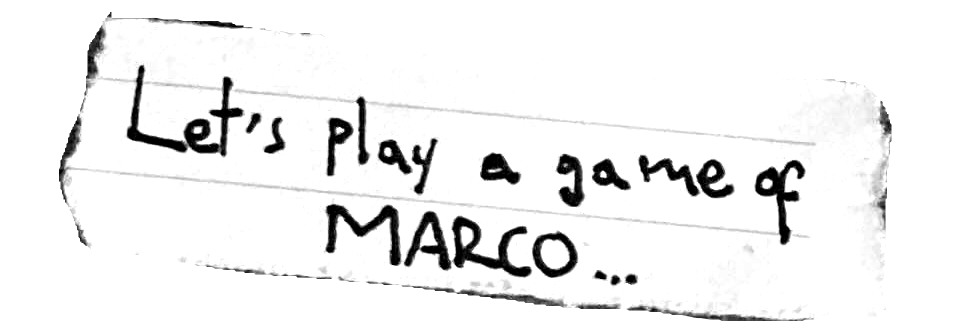 Let's play a game of
MARCO...